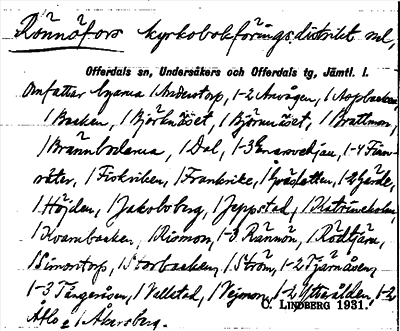 Rönnöfors kyrkobokföringsdistrikt ml,
Offerdals sn, Undersåkers och Offerdals tg, Jämtl. l.
Omfattar byarna 1 Anderstorp, 1-2 Anvågen, 1 Aspbacken,
1 Backen, 1 Björknäset, 1 Björnnäset, 1 Brattmon,
1 Brännbodarna, 1 Dal, 1-3 Enarsvedjan, 1-4 Finn-
säter, 1 Fiskviken, 1 Frankrike, 1 Gråslätten, 1-2 Gärde,
1 Höjden, 1 Jakobsberg, 1 Jeppstad, 1 Katrineholm,
1 Kvarnbacken, 1 Rismon, 1-3 Rönnön, 1 Rödtjärn,
1 Simonstorp, 1 Storbacken, 1 Ström, 1-2 Tjärnåsen,
1-3 Tångeråsen, 1 Vallstad, 1 Vejmon, 1-2 Ytterolden, 1-2
Åflo o 1 Åkersberg.
C. LINDBERG 1931.